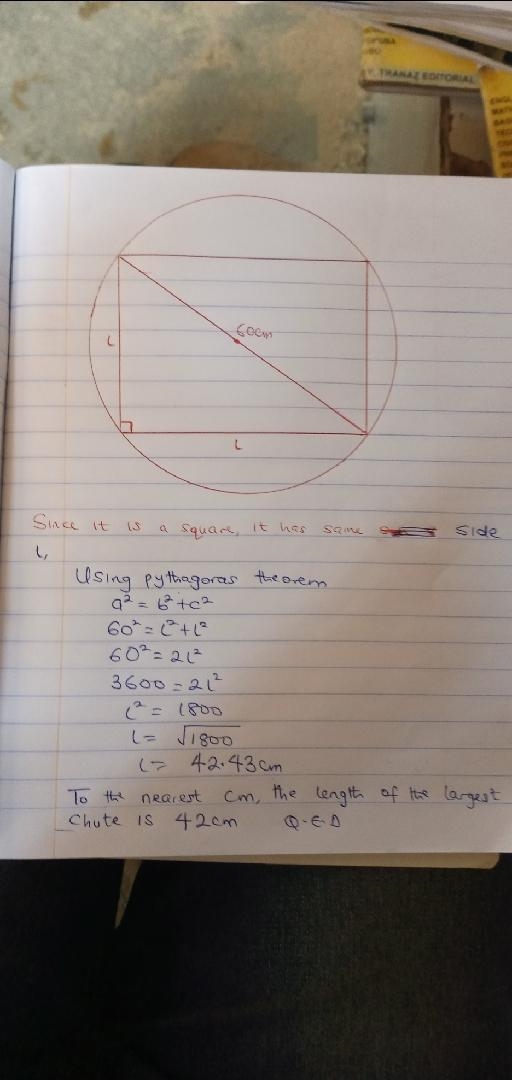 Y. THANAZ EDITORIAL
60cm
L
L
Since it is a square, it has same side
L,
Using pythagoras theorem
a² = b² + c²
60² = L² + L²
60² = 2L²
3600 = 2L²
L² = 1800
L = √1800
L = 42.43cm
To the nearest cm, the length of the largest
Chute is 42cm Q.E.D